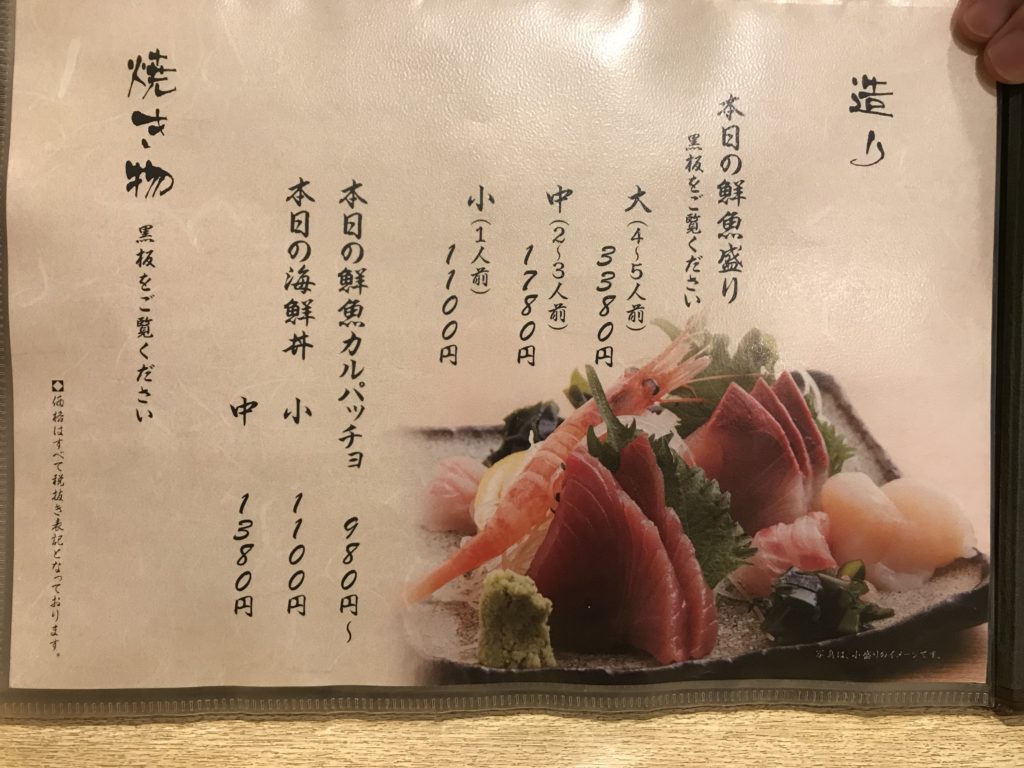 造り
本日の鮮魚盛り
黒板をご覧ください
大(4~5人前)
3380円
中(2~3人前)
1780円
小(1人前)
1100円
本日の鮮魚カルパッチョ 980円~
本日の海鮮丼 小 1100円
中 1380円
焼き物 黒板をご覧ください
◆価格はすべて税抜き表記となっております。
写真は、小盛りのイメージです。